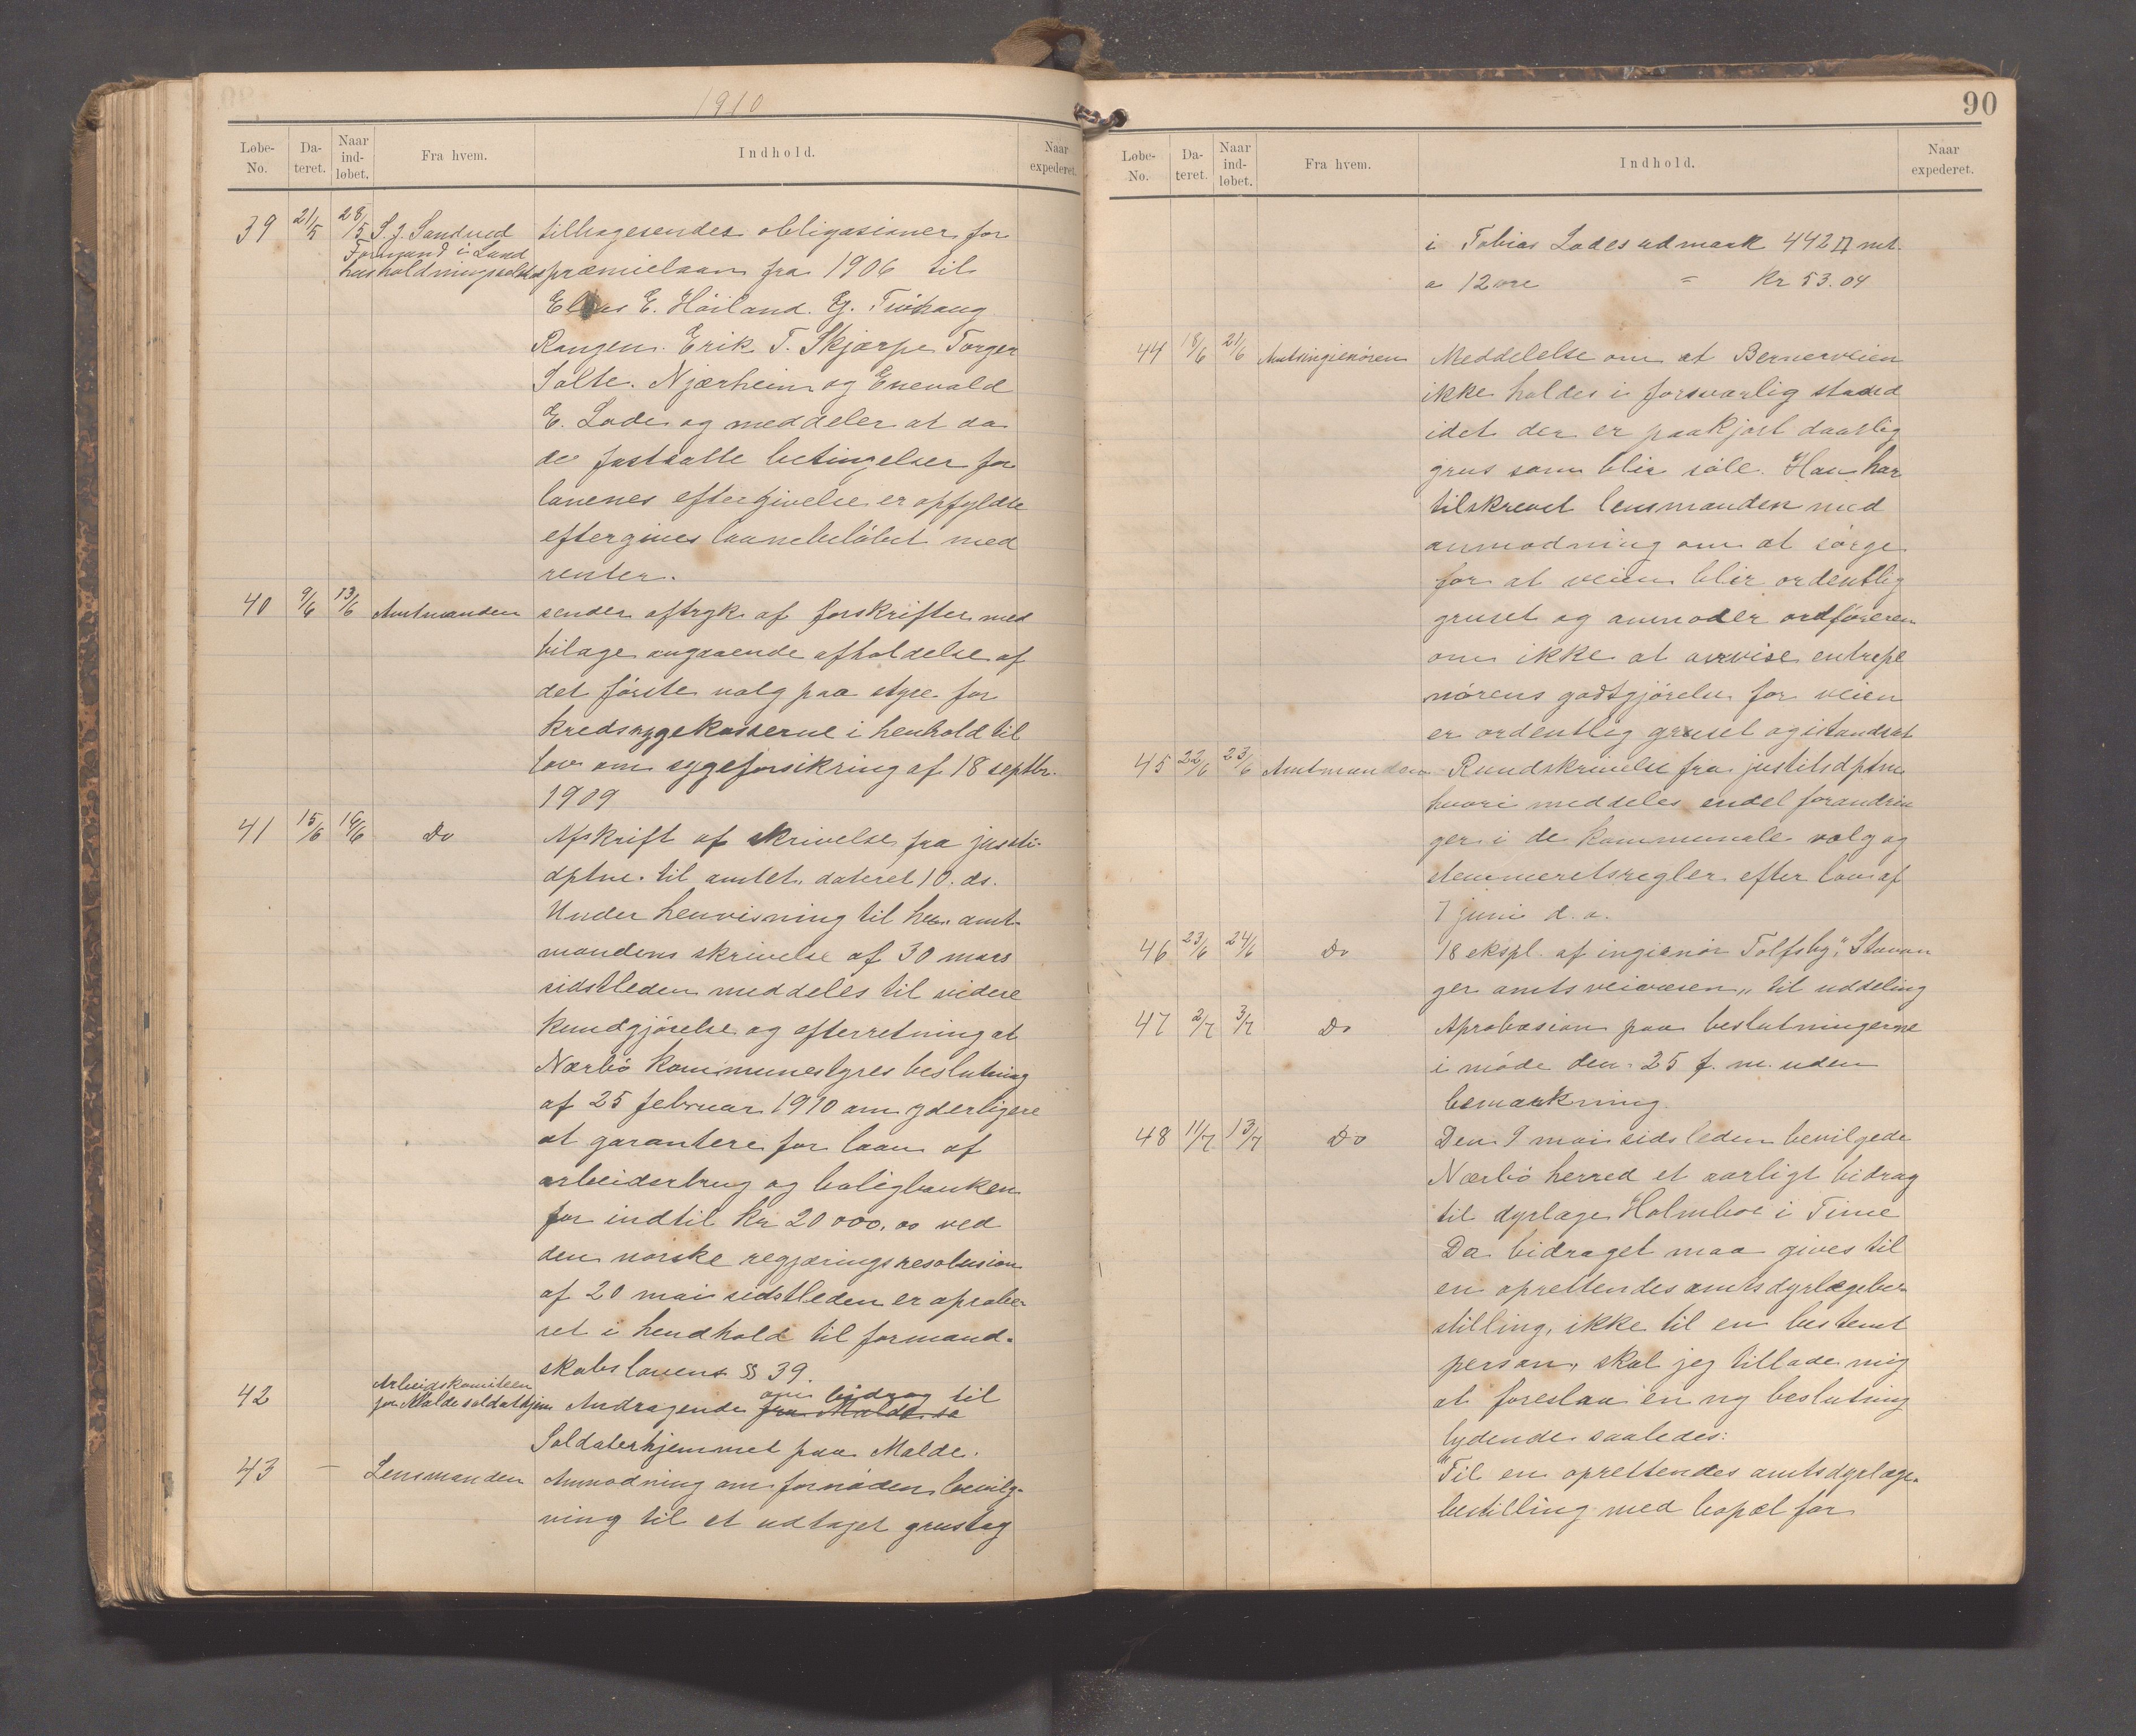 1910
Løbe-No. Da-teret. Naar ind-løbet. Fra hvem. Indhold. Naar expederet.
39 21/5 28/5 S. J. Sandved tilbagesendes obligasioner for
Formand i Land
husholdningsselsk præmielaan fra 1906 til
Elias E. Höiland. G. Tuihaug
Rongen. Erik T. Skjærpe Torger
Salte. Njærheim og Enevald
E. Lode og meddeler at da
de fastsatte betingelser for
lanenes eftergivelse er opfyldte
eftergives laanebeløbet med
renter.
40 9/6 13/6 Amtmanden sender aftryk af forskrifter med
bilage angaaende afholdelse af
det første valg paa styre for
kredssygekasserne i henhold til
lov om sygeforsikring af 18 septbr.
1909
41 15/6 16/6 Do Afskrift af skrivelse fra justi-
dptne. til amtet. dateret 10. ds.
Under henvisning til hr. amt-
mandens skrivelse af 30 mars
sidstleden meddeles til videre
kundgjørelse og efterretning at
Nærbö kommunestyres beslutning
af 25 februar 1910 om yderligere
at garantere for laan af
arbeiderbrug og boligbanken
for indtil kr 20 000,00 ved
den norske regjærings resolusion
af 20 mai sidstleden er aprobe-
ret i hendhold til formand-
skabslovens §§ 39.
42 Arbeidskomiteen
for Malde soldathjem Andragende fra Malde so om bidrag til
Soldaterhjemmet paa Malde.
43 — Lensmanden Anmodning om fornøden bevilg-
ning til et udtaget grustag
90
Løbe-No. Da-teret. Naar ind-løbet. Fra hvem. Indhold. Naar expederet.
i Tobias Lodes udmark 442 □ mt.
a 12 øre = kr 53.04
44 18/6 21/6 Amtsingieniøren Meddelelse om at Bernerveien
ikke holdes i forsvarlig stand
idet der er paakjørt daarlig
grus som blir söle. Han har
tilskrevet lensmanden med
anmodning om at sörge
for at veien blir ordentlig
gruset og anmoder ordføreren
om ikke at anvise entrepe
nörens godtgjörelse for veien
er ordentlig gruset og istandsat
45 22/6 23/6 Amtmanden Rundskrivelse fra justitsdptm
hvori meddeles endel forandrin
ger i de kommunale valg og
stemmeretsregler efter lov af
7 juni d. a.
46 23/6 24/6 Do 18 ekspl. af ingieniör Tolfsby „Stavan
ger amts veivæsen„ til uddeling
47 2/7 3/7 Do Aprobasion paa beslutningerne
i möde den 25 f. m. uden
bemærkning.
48 11/7 13/7 Do Den 9 mai sidsleden bevilgede
Nærbö herred et aarligt bidrag
til dyrlæge Holmboe i Time
Da bidraget maa gives til
en oprettendes amtsdyrlægebe-
stilling, ikke til en bestemt
person, skal jeg tillade mig
at foreslaa en ny beslutning
lydende saaledes:
"Til en oprettendes amtsdyrlæge-
bestilling med bopæl for